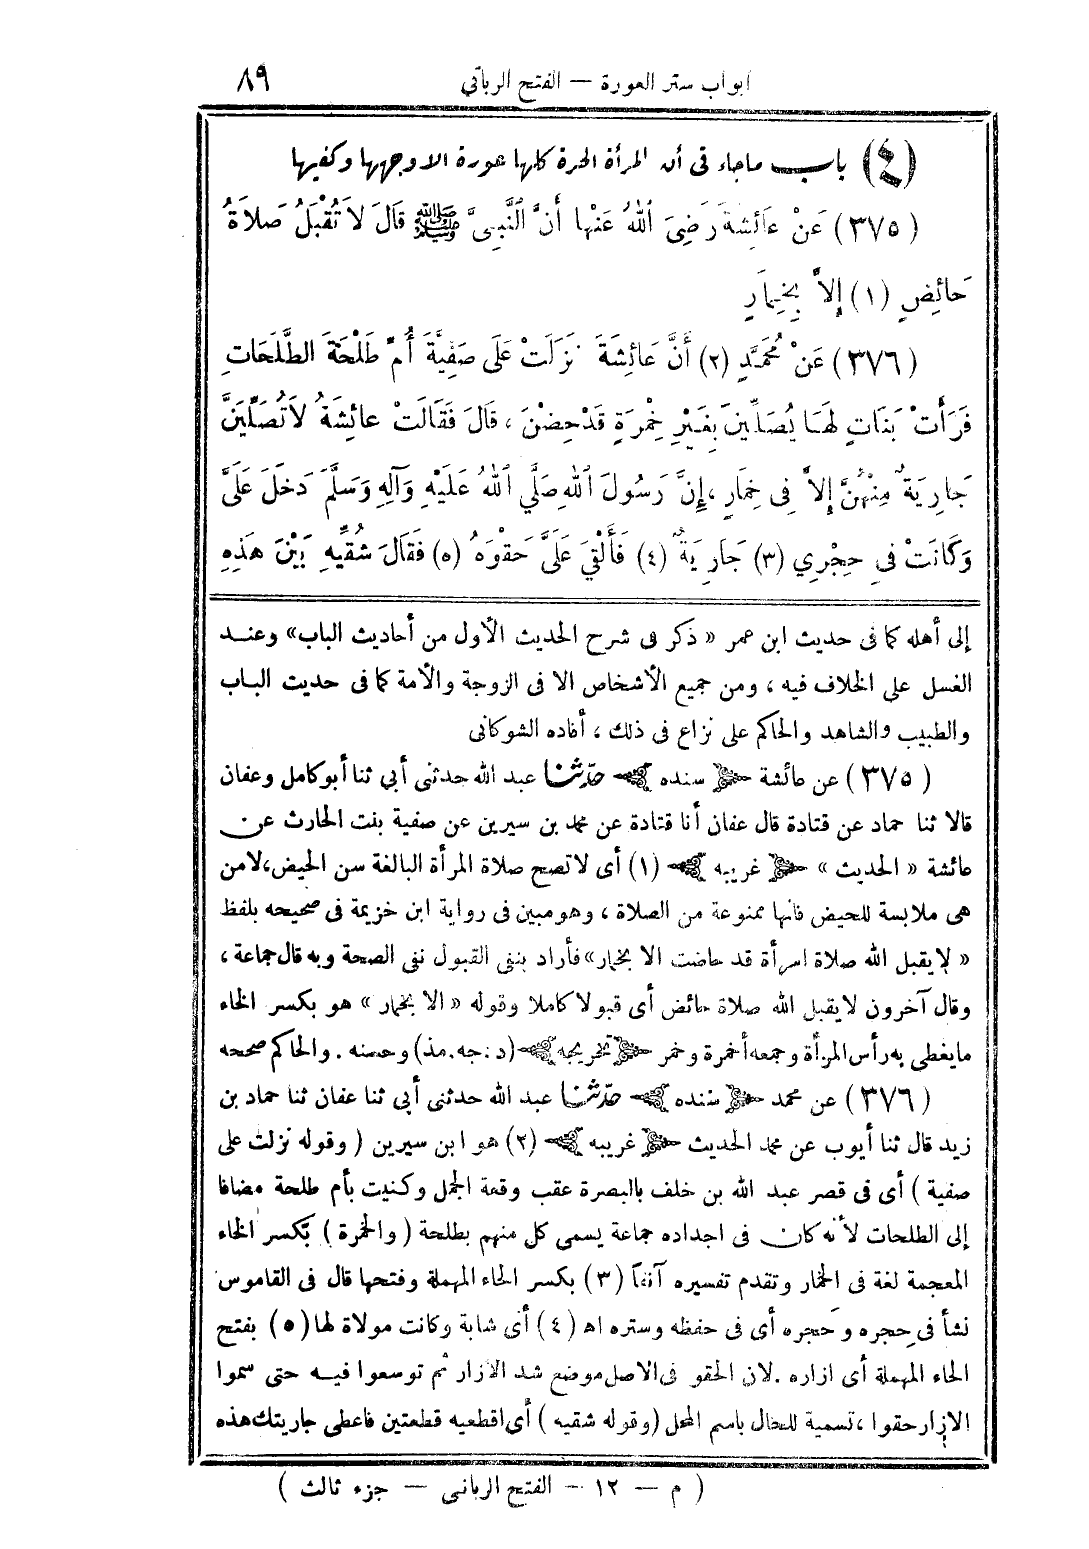 ابواب ستر العورة – الفتح الرباني ٨٩
(٤) باب ماجاء فى أن المرأة الحرة كلها عورة الا وجهها وكفيها
(٣٧٥) عَنْ عَائِشَةَ رَضِىَ اللهُ عَنْهَا أَنَّ النَّبِىَّ ﷺ قَالَ لاَ تُقْبَلُ صَلاَةُ
حَائِضٍ (١) إِلاَّ بِخِمَارٍ
(٣٧٦) عَنْ مُحَمَّدٍ (٢) أَنَّ عَائِشَةَ نَزَلَتْ عَلَى صَفِيَّةَ أُمِّ طَلْحَةَ الطَّلَحَاتِ
فَرَأَتْ بَنَاتٍ لَهَا يُصَلِّينَ بِغَيْرِ خِمْرَةٍ قَدْ حِضْنَ ، قَالَ فَقَالَتْ عَائِشَةُ لاَ تُصَلِّيَنَّ
جَارِيَةٌ مِنْهُنَّ إِلاَّ فِى خِمَارٍ ، إِنَّ رَسُولَ اللهِ صَلَّي اللهُ عَلَيْهِ وَآلِهِ وَسَلَّمَ دَخَلَ عَلَىَّ
وَكَانَتْ فِى حِجْرِي (٣) جَارِيَةٌ (٤) فَأَلْقَي عَلَىَّ حَقْوَهُ (٥) فَقَالَ شُقِّيهِ بَيْنَ هَذِهِ
إلى أهله كما فى حديث ابن عمر « ذكر فى شرح الحديث الأول من أحاديث الباب» وعند
الغسل على الخلاف فيه ، ومن جميع الأشخاص الا فى الزوجة والأمة كما فى حديث الباب
والطبيب والشاهد والحاكم على نزاع فى ذلك ، أفاده الشوكانى
(٣٧٥) عن عائشة سنده حدّثنا عبد الله حدثنى أبي ثنا أبو كامل وعفان
قالا ثنا حماد عن قتادة قال عفان أنا قتادة عن محمد بن سيرين عن صفية بنت الحارث عن
عائشة « الحديث » غريبه (١) أى لا تصح صلاة المرأة البالغة سن الحيض، لا من
هى ملابسة للحيض فانها ممنوعة من الصلاة ، وهو مبين فى رواية ابن خزيمة فى صحيحه بلفظ
« لا يقبل الله صلاة امرأة قد حاضت الا بخمار» فأراد بنفى القبول نفى الصحة وبه قال جماعة ،
وقال آخرون لا يقبل الله صلاة حائض أى قبولا كاملا وقوله « الا بخمار » هو بكسر الخاء
ما يغطى به رأس المرأة وجمعه أخمرة وخمر تخريجه (د . جه . مذ) وحسنه . والحاكم صححه
(٣٧٦) عن محمد سنده حدّثنا عبد الله حدثنى أبي ثنا عفان ثنا حماد بن
زيد قال ثنا أيوب عن محمد الحديث غريبه (٢) هو ابن سيرين ( وقوله نزلت على
صفية ) أى فى قصر عبد الله بن خلف بالبصرة عقب وقعة الجمل وكنيت بأم طلحة مضافا
إلى الطلحات لأنه كان فى اجداده جماعة يسمى كل منهم بطلحة ( والخمرة ) بكسر الخاء
المعجمة لغة فى الخمار وتقدم تفسيره آنفا (٣) بكسر الحاء المهملة وفتحها قال فى القاموس
نشأ فى حِجره وحَجره أى فى حفظه وستره اه (٤) أى شابة وكانت مولاة لها (٥) بفتح
الحاء المهملة أى ازاره . لان الحقو فى الاصل موضع شد الازار ثم توسعوا فيه حتى سموا
الازار حقوا ، تسمية للحال باسم المحل (وقوله شقيه ) أى اقطعيه قطعتين فاعطى جاريتك هذه
( م — ١٢ – الفتح الربانى — جزء ثالث )